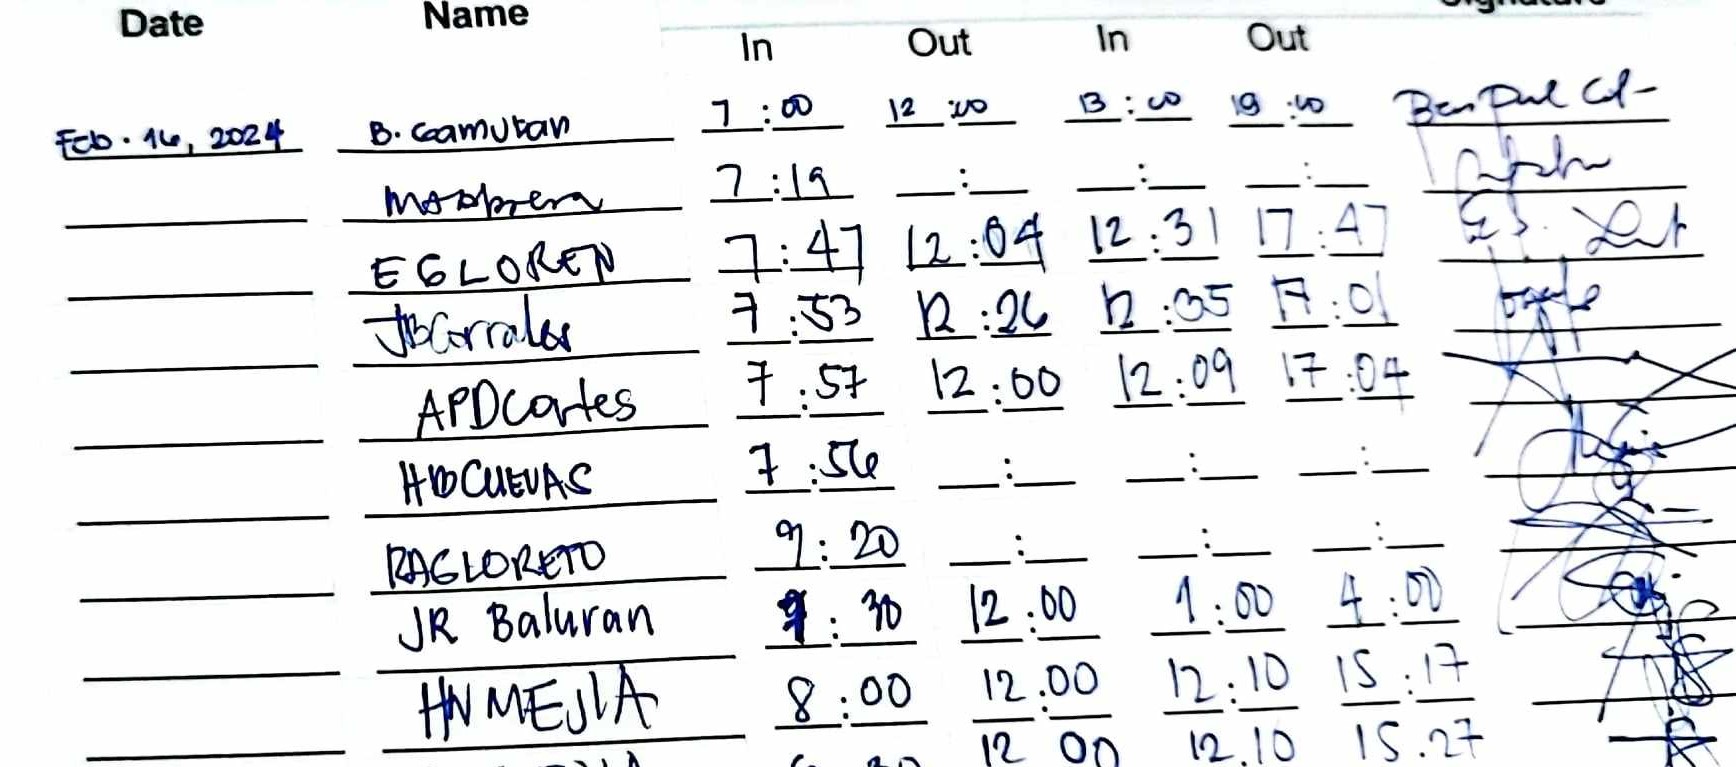 Date Name In Out In Out Signature
Feb. 16, 2024 B. Gamutan 7:00 12:00 13:00 19:00
7:19 __:__ __:__ __:__
EGLOREN 7:47 12:04 12:31 17:47
JBCorrales 7:53 12:26 12:35 17:01
APDCortes 7:57 12:00 12:09 17:04
HDCUEVAS 7:56 __:__ __:__ __:__
RAGLORETO 9:20 __:__ __:__ __:__
JR Baluran 9:30 12:00 1:00 4:00
HN MEJIA 8:00 12:00 12:10 15:17
12 00 12.10 15.27